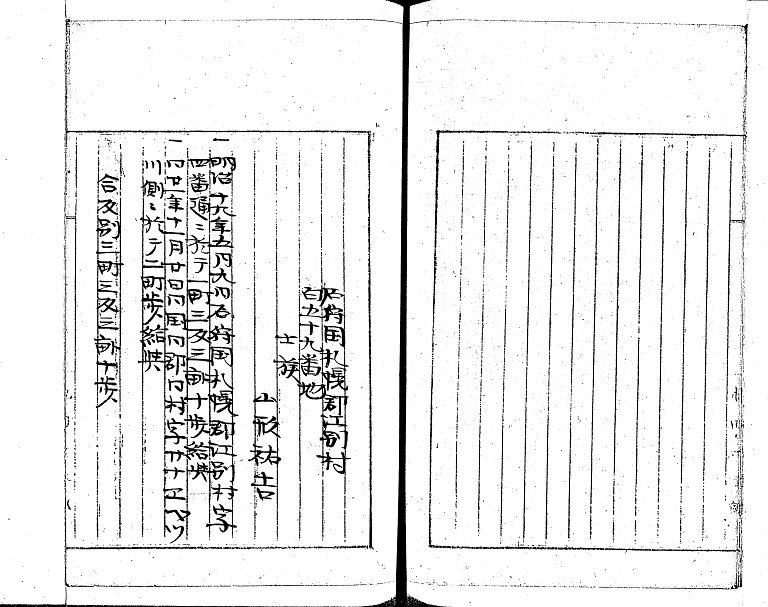 石狩国札幌郡江別村
百五十九番地
士族
山形祐吉
一明治十九年五月九日石狩国札幌郡江別村字
四番通ニ於テ一町三反三畝十歩給与
一同廿一年十一月廿四日同国同郡同村字
川側ニ於テ二町歩給与
合反別三町三反三畝十歩